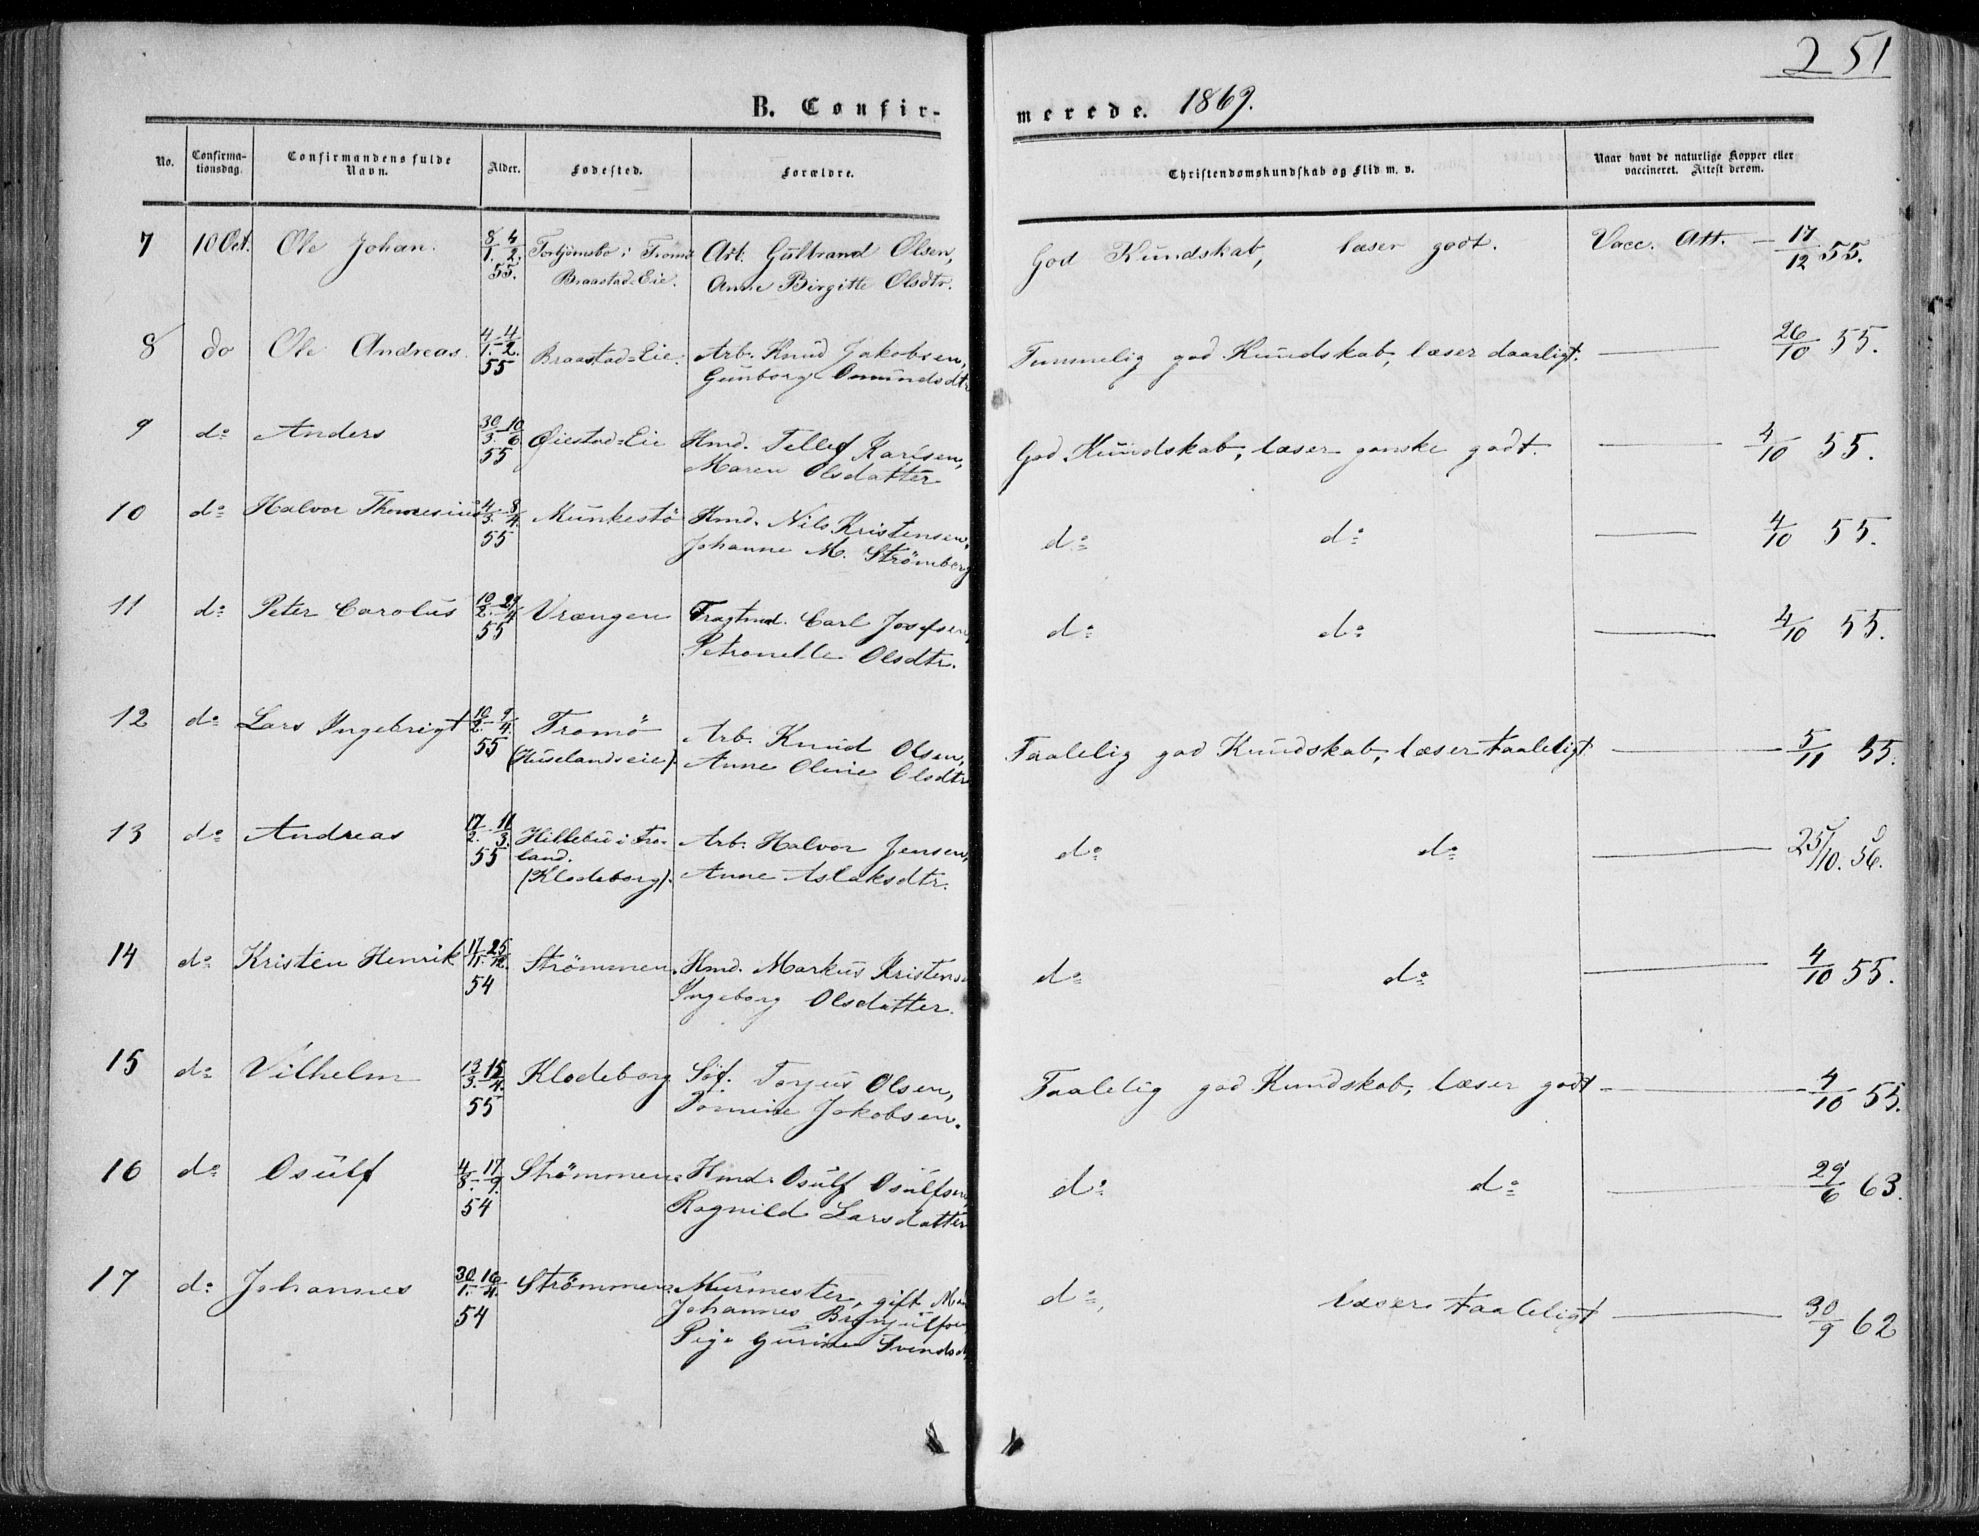 251
B. Confir-
merede. 1869.
No.
Confirma-
tionsdag.
Confirmandens fulde
Navn.
Alder.
Fødested.
Forældre.
Christendomskundskab og Flid m. v.
Naar havt de naturlige Kopper eller
vaccineret. Attest derom.
7 10 Oct. Ole Johan. 8/1. 4/2. Torbjörnsbo i Tromö Arb. Gulbrand Olsen, God Kundskab, læser godt. Vacc. Att. — 17/12 55.
55. Braastad-Eie. Anne Birgitte Olsdtr.
8 do Ole Andreas. 4/1.-4/2. Braastad-Eie. Arb. Knud Jakobsen, Temmelig god Kundskab, læser daarligt. — 26/10 55.
55 Gunborg Omundsdtr
9 do Anders 30/3.-10/6. Øiestad-Eie Hmd. Tellef Karlsen, God Kundskab, læser ganske godt. — 4/10 55.
55 Maren Olsdatter
10 do Halvor Thomesius 4/3.-8/4. Munkestö Hmd. Nils Kristensen, do do — 4/10 55.
55 Johanne M. Strömberg
11 do Peter Carolus 10/2.-24/4 Vrængen Fragtmd. Carl Josefsen, do do — 4/10 55.
55 Petronelle Olsdtr.
12 do Lars Ingebrigt 10/2.-9/4. Tromö Arb. Knud Olsen, Taalelig god Kundskab, læser taaleligt — 5/11 55.
55 (Huselandseie). Anne Oline Olsdtr
13 do Andreas 17/2.-11/3. Hillebu i Fro- Arb. Halvor Jensen, do do — 25/10. 56.
55 land.
(Klodeborg). Anne Aslaksdtr.
14 do Kristen Henrik 17/11.-25/12. Strömmen. Hmd. Markus Kristens do do — 4/10 55.
54 Ingeborg Olsdatter.
15 do Vilhelm 13/3.-15/4. Klodeborg Söf. Torjus Olsen, Taalelig god Kundskab, læser godt — 4/10 55.
55 Tomine Jakobsen.
16 do Osulf 4/8.-17/9. Strömmen. Hmd. Osulf Osulfsen, do do — 29/6 63.
54 Ragnild Larsdatter
17 do Johannes 30/1.-16/4. Strömmen. Murmester, gift Man do, læser taaleligt — 30/9 62
54 Johannes Brynjulfsen
Pige Gurine Svendsd